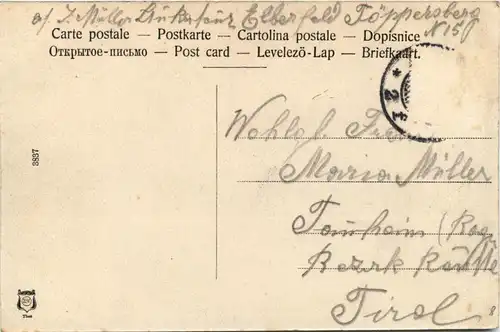 J. Müller Elberfeld Töppersberg
N 15
Carte postale — Postkarte — Cartolina postale — Dopisnice
Открытое-письмо — Post card — Levelező-Lap — Briefkaart.
3837
* 2
Wohlgb. Frau
Maria Müller
Tannheim
Bezirk Reutte
Tirol